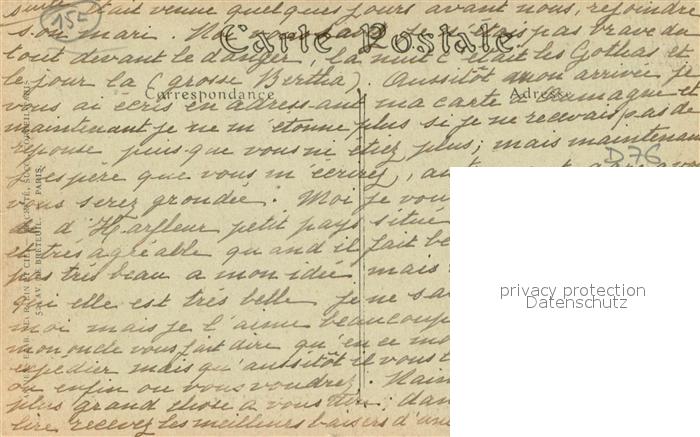 suite était venue quelques jours avant nous, rejoindre
155
son mari. Ne
Carte Postale
tout devant le danger, la nuit c'était les Gothas et
le jour la (grosse Bertha). Aussitôt mon arriver je
Correspondance
Adresse
vous ai écris en adressant ma carte a
maintenant je ne m'étonne plus si je ne recevais pas de
réponse puis que vous ni étiez plus; mais maintenant
D76
j'espère que vous m'ecrirez,
vous serez grondée. Moi je vou
d'Harfleur petit pays situé
et très agréable quand il fait be
pas très beau a mon idée mais
qui elle est très belle je ne sa
moi mais je l'aime beaucoup
mon oncle vous fait dire qu'en ce mo
expédier mais qu'aussitôt il vous
ou enfin ou vous voudrez.
plus grand chose a vous dire; dan
lire recevez les meilleurs baisers d'une
52, AV. DE BRETEUIL. PARIS.
privacy protection
Datenschutz